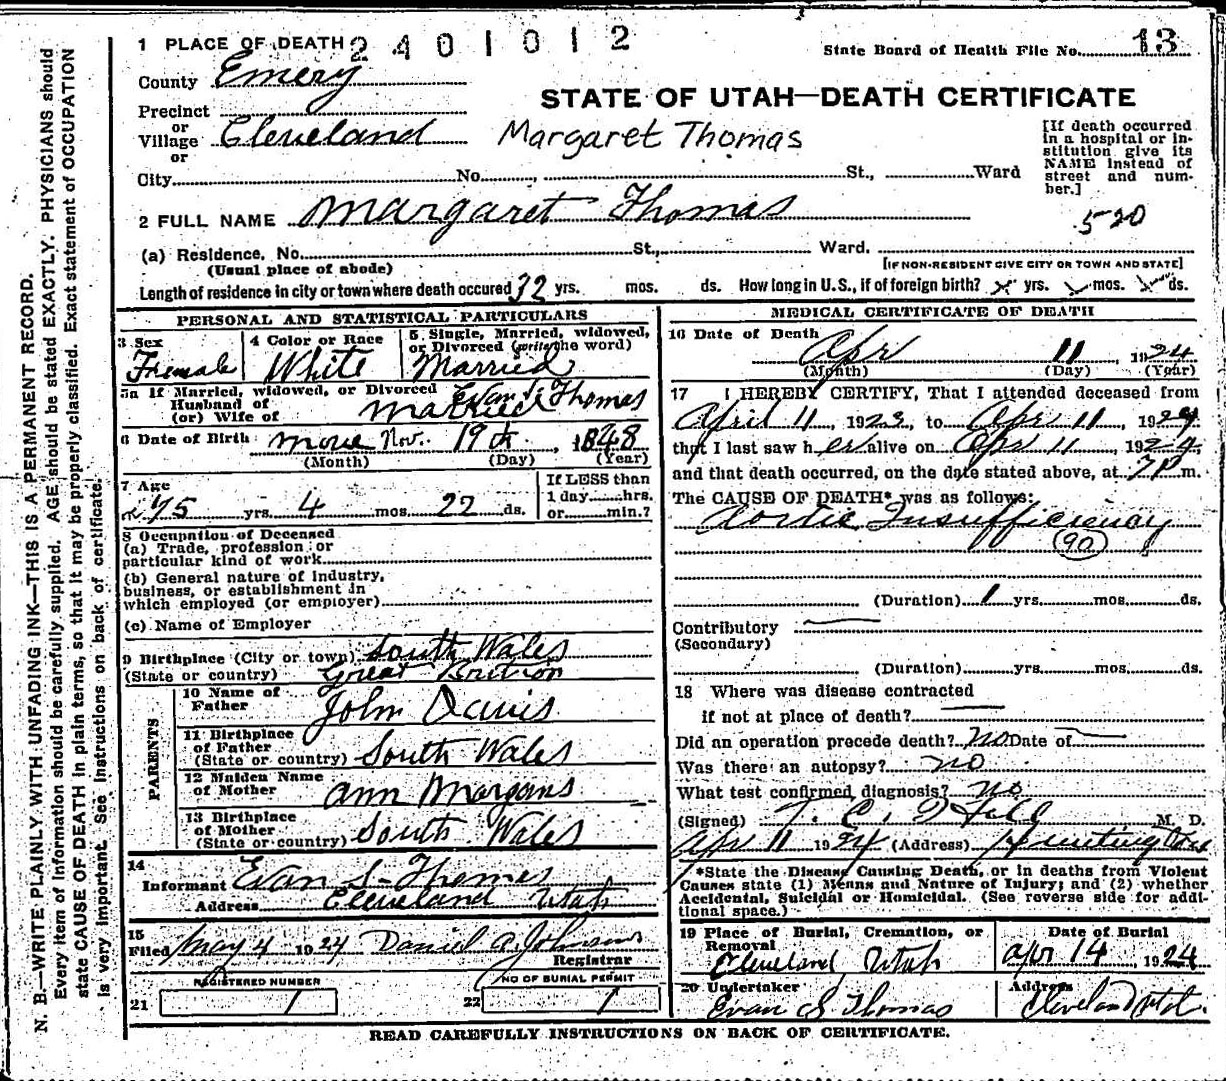 1 PLACE OF DEATH 2401012
State Board of Health File No. 13
County Emery
STATE OF UTAH—DEATH CERTIFICATE
Precinct
or
Village Cleveland
or
Margaret Thomas
[If death occurred in a hospital or institution give its NAME instead of street and number.]
City No. , St., Ward
2 FULL NAME Margaret Thomas
520
(a) Residence, No. St., Ward.
(Usual place of abode) [IF NON-RESIDENT GIVE CITY OR TOWN AND STATE]
Length of residence in city or town where death occured 32 yrs. mos. ds. How long in U.S., if of foreign birth? yrs. mos. ds.
PERSONAL AND STATISTICAL PARTICULARS
3 Sex Female
4 Color or Race White
5 Single, Married, widowed, or Divorced (write the word) Married
5a If Married, widowed, or Divorced
Husband of
(or) Wife of Married Evan S Thomas
6 Date of Birth Nov. 19th, 1848
(Month) (Day) (Year)
7 Age 75 yrs. 4 mos. 22 ds.
If LESS than 1 day hrs. or min.?
8 Occupation of Deceased
(a) Trade, profession or particular kind of work
(b) General nature of Industry, business, or establishment in which employed (or employer)
(c) Name of Employer
9 Birthplace (City or town) South Wales
(State or country) Great Brition
PARENTS
10 Name of Father John Davis
11 Birthplace of Father (State or country) South Wales
12 Maiden Name of Mother Ann Margans
13 Birthplace of Mother (State or country) South Wales
14
Informant Evan S Thomas
Address Cleveland Utah
15
Filed May 4 1924 Daniel A. Johnson
Registrar
REGISTERED NUMBER
21 1
NO OF BURIAL PERMIT
22 1
MEDICAL CERTIFICATE OF DEATH
16 Date of Death
Apr 11, 1924
(Month) (Day) (Year)
17 I HEREBY CERTIFY, That I attended deceased from
April 11, 1923, to Apr 11, 1924
that I last saw her alive on Apr 11, 1924,
and that death occurred, on the date stated above, at 7 P m.
The CAUSE OF DEATH* was as follows:
Aortic Insufficiency
90
(Duration) 1 yrs. mos. ds.
Contributory
(Secondary)
(Duration) yrs. mos. ds.
18 Where was disease contracted
if not at place of death?
Did an operation precede death? No Date of
Was there an autopsy? no
What test confirmed diagnosis? no
(Signed) T. C. Hill M. D.
Apr 11 1924 (Address) Huntington
*State the Disease Causing Death, or in deaths from Violent
Causes state (1) Means and Nature of Injury; and (2) whether
Accidental, Suicidal or Homicidal. (See reverse side for addi-
tional space.)
19 Place of Burial, Cremation, or Removal
Cleveland, Utah
Date of Burial
Apr 14, 1924
20 Undertaker
Evan S Thomas
Address
Cleveland Utah
READ CAREFULLY INSTRUCTIONS ON BACK OF CERTIFICATE.
N. B.—WRITE PLAINLY WITH UNFADING INK—THIS IS A PERMANENT RECORD.
Every item of information should be carefully supplied. AGE should be stated EXACTLY. PHYSICIANS should
state CAUSE OF DEATH in plain terms, so that it may be properly classified. Exact statement of OCCUPATION
is very important. See instructions on back of certificate.